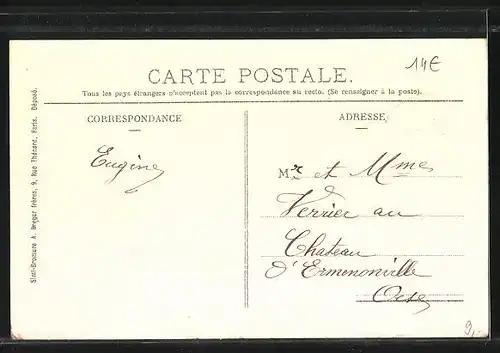 14€
CARTE POSTALE.
Tous les pays étrangers n'acceptent pas la correspondance au recto. (Se renseigner à la poste).
CORRESPONDANCE
ADRESSE
Eugène
Mr et Mme
Verrier au
Chateau
d'Ermenonville
Oise
9,-
Simi-Bromure A. Breger frères, 9, Rue Thénard, Paris. Déposé.